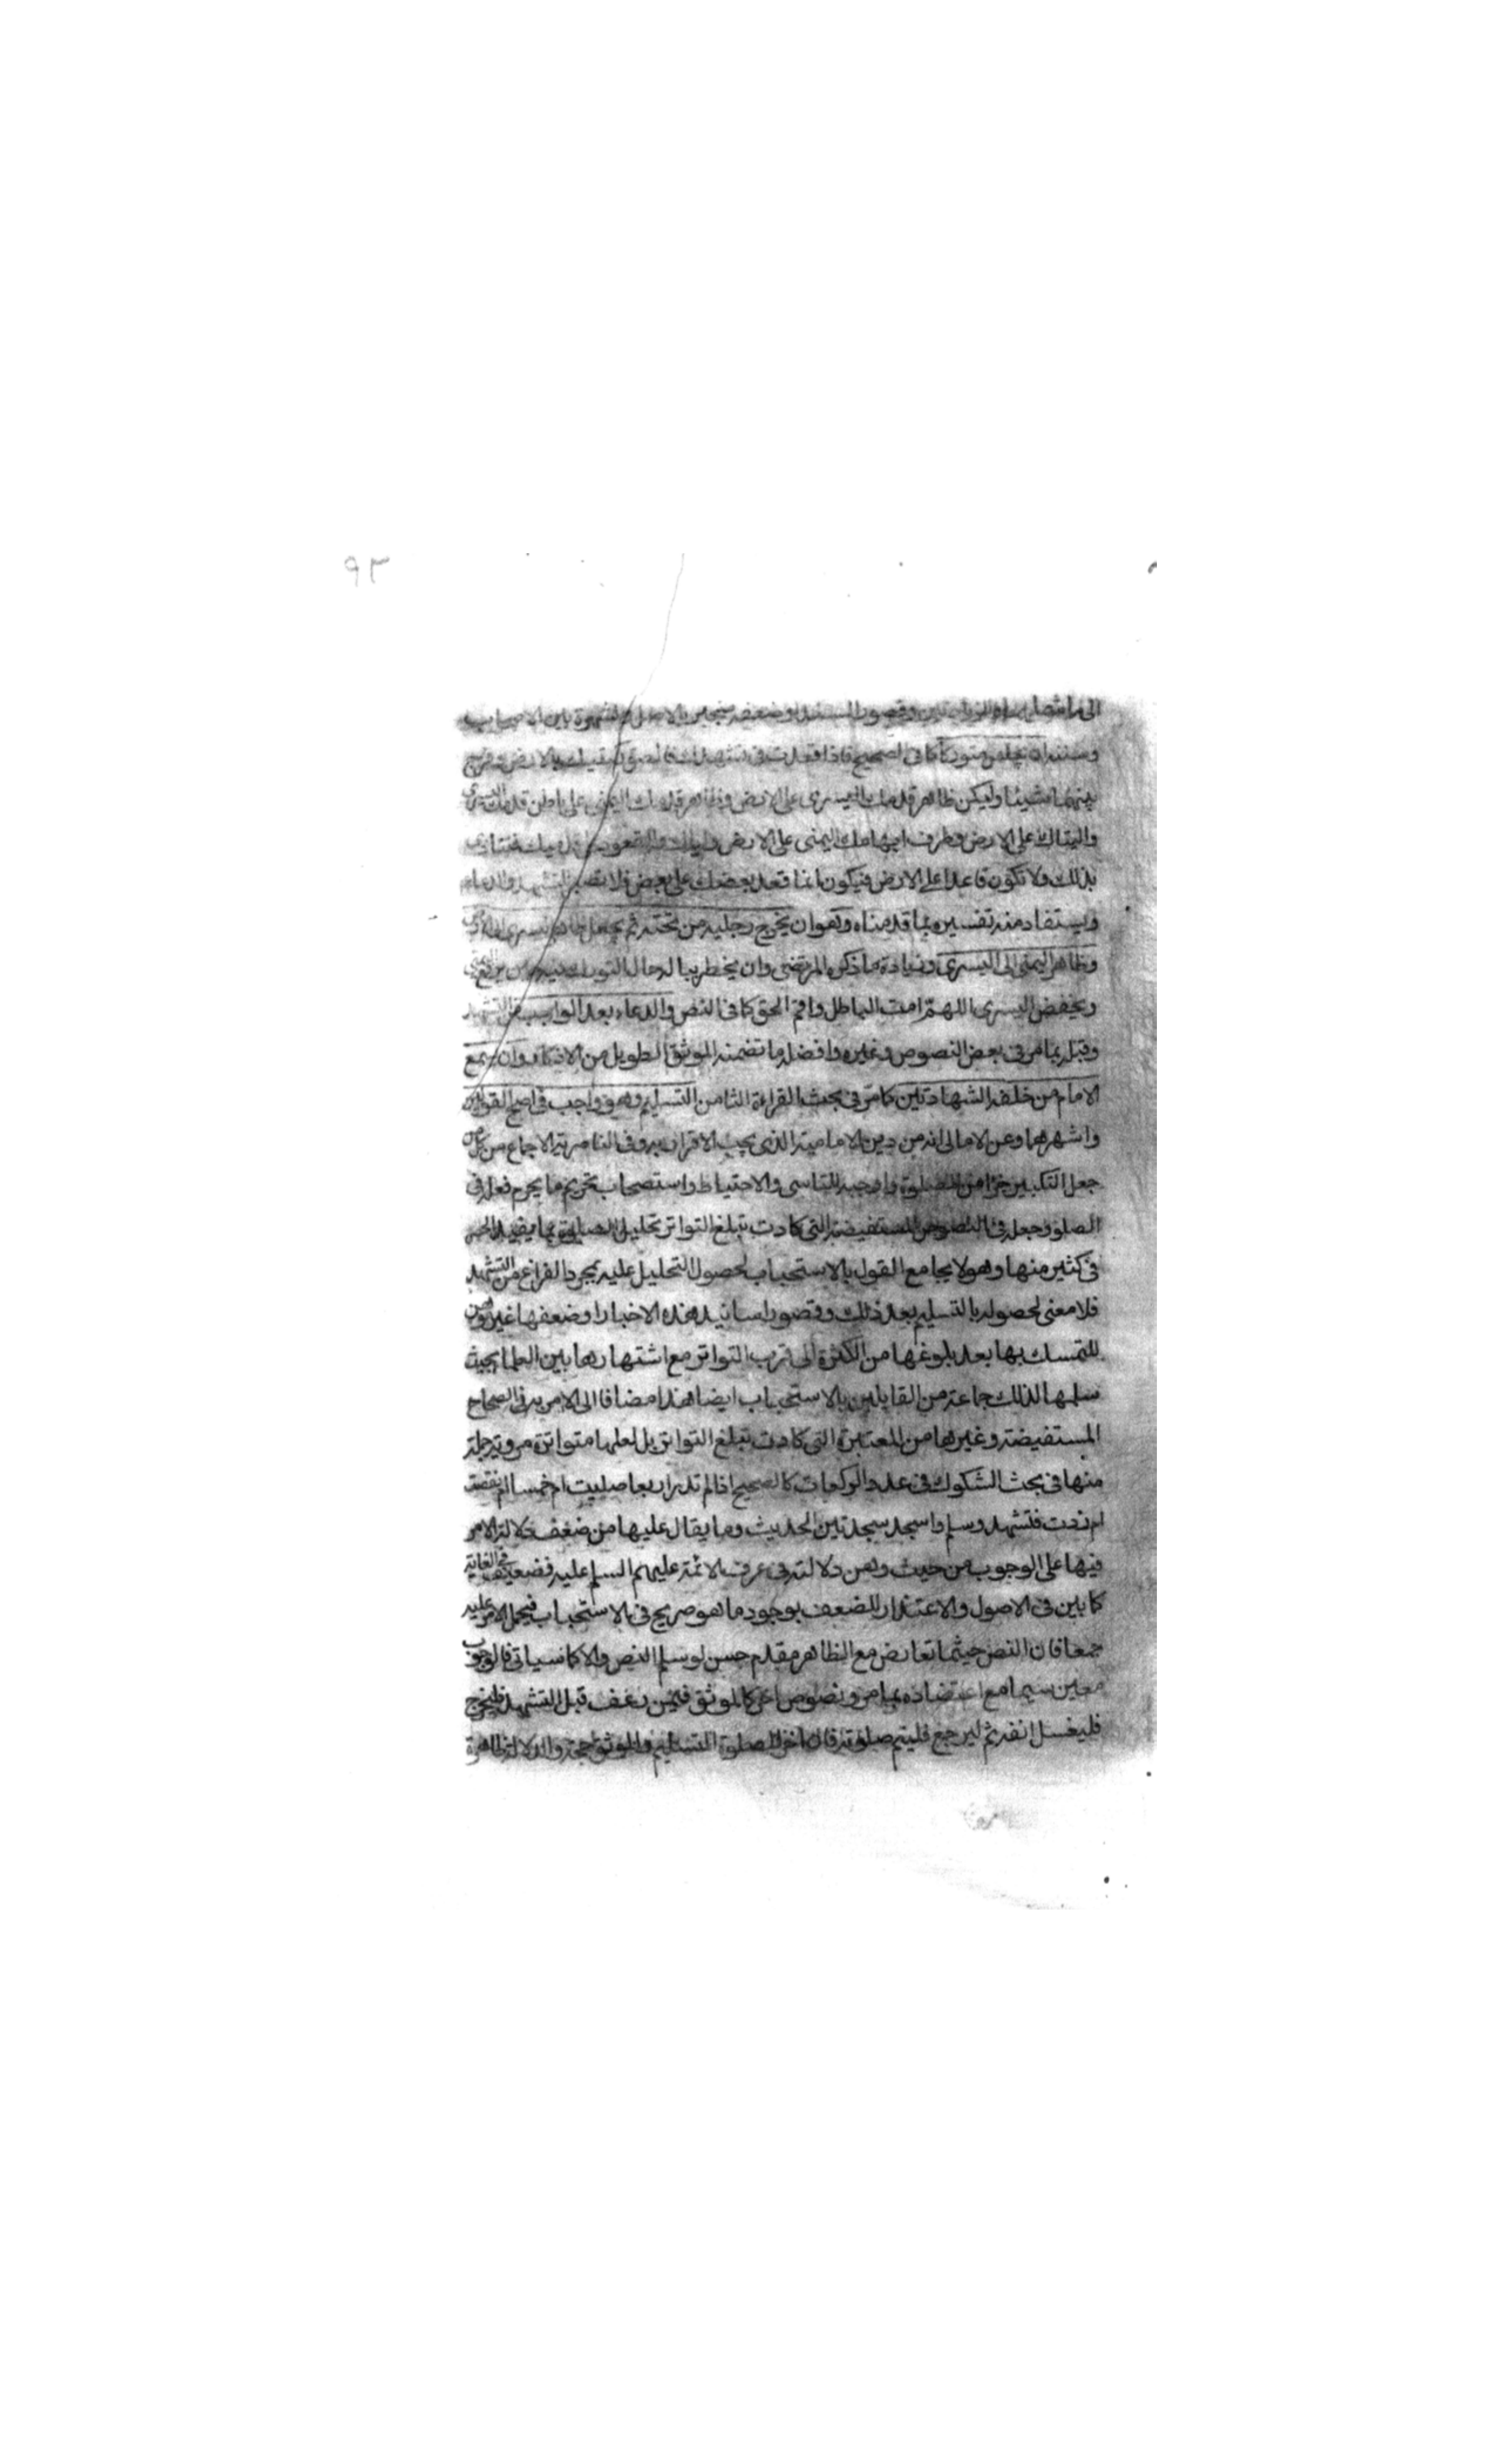 ٩٣
وسننه ان يجلس متوركا كما في الصحيح فاذا قعدت في تشهدك فالصق ركبتيك بالارض وفرج
بينهما شيئا وليكن ظاهر قدمك اليسرى على الارض وظاهر قدمك اليمنى على باطن قدمك اليسرى
واليتاك على الارض وطرف ابهامك اليمنى على الارض واياك والقعود على قدميك فتتاذى
بذلك ولا تكون قاعدا على الارض فيكون انما قعد بعضك على بعض فلا تصبر للتشهد والدعاء
ويستفاد منه تفسيره بما قدمناه وهو ان يخرج رجليه من تحته ثم يجعل ظاهر اليسرى الى الارض
وظاهر اليمنى الى اليسرى وزيادة ما ذكره المرتضى وان يخطر بباله حال التورك حين يرفع اليمنى
ويخفض اليسرى اللهم امت الباطل واقم الحق كما في النص والدعاء بعد الواجب من التشهد
وقبله بما مر في بعض النصوص وغيره وافضله ما تضمنه الموثق الطويل من الاذكار وان يسمع
الامام من خلفه الشهادتين كما مر في بحث القراءة الثامن التسليم وهو واجب في اصح القولين
واشهرهما وعن الامالي انه من دين الامامية الذي يجب الاقرار به وفي الناصرية الاجماع من كل من
جعل التكبير جزءا من الصلوة واوجبه للتاسي والاحتياط واستصحاب تحريم ما يحرم فعله في
الصلوة وجعله في النصوص المستفيضة التي كادت تبلغ التواتر تحليل الصلوة بما يفيد الحصر
في كثير منها وهو لا يجامع القول بالاستحباب لحصول التحليل عليه بمجرد الفراغ من التشهد
فلا معنى لحصوله بالتسليم بعد ذلك وقصور اسانيد هذه الاخبار او ضعفها غير موهن
للتمسك بها بعد بلوغها من الكثرة الى قرب التواتر مع اشتهارها بين العلماء بحيث
سلمها لذلك جماعة من القايلين بالاستحباب ايضا هذا مضافا الى الامر به في الصحاح
المستفيضة وغيرها من المعتبرة التي كادت تبلغ التواتر بل لعلها متواترة مروية جملة
منها في بحث الشكوك في عدد الركعات كالصحيح اذا لم تدر اربعا صليت ام خمسا ام نقصت
ام زدت فتشهد وسلم واسجد سجدتين الحديث وما يقال عليها من ضعف دلالة الامر
فيها على الوجوب من حيث وهن دلالته في عرف الائمة عليهم السلم عليه فضعيف في الغاية
كما بين في الاصول والاعتذار للضعف بوجود ما هو صريح في الاستحباب فيحمل الامر عليه
جمعا فان النص حيثما تعارض مع الظاهر مقدم حسن لو سلم النص والا كما سياتي فالوجوب
معين سيما مع اعتضاده بما مر ونصوص اخر كالموثق فيمن رعف قبل التشهد فليخرج
فليغسل انفه ثم ليرجع فليتم صلوته فان اخر الصلوة التسليم والموثق حجة والدلالة ظاهرة